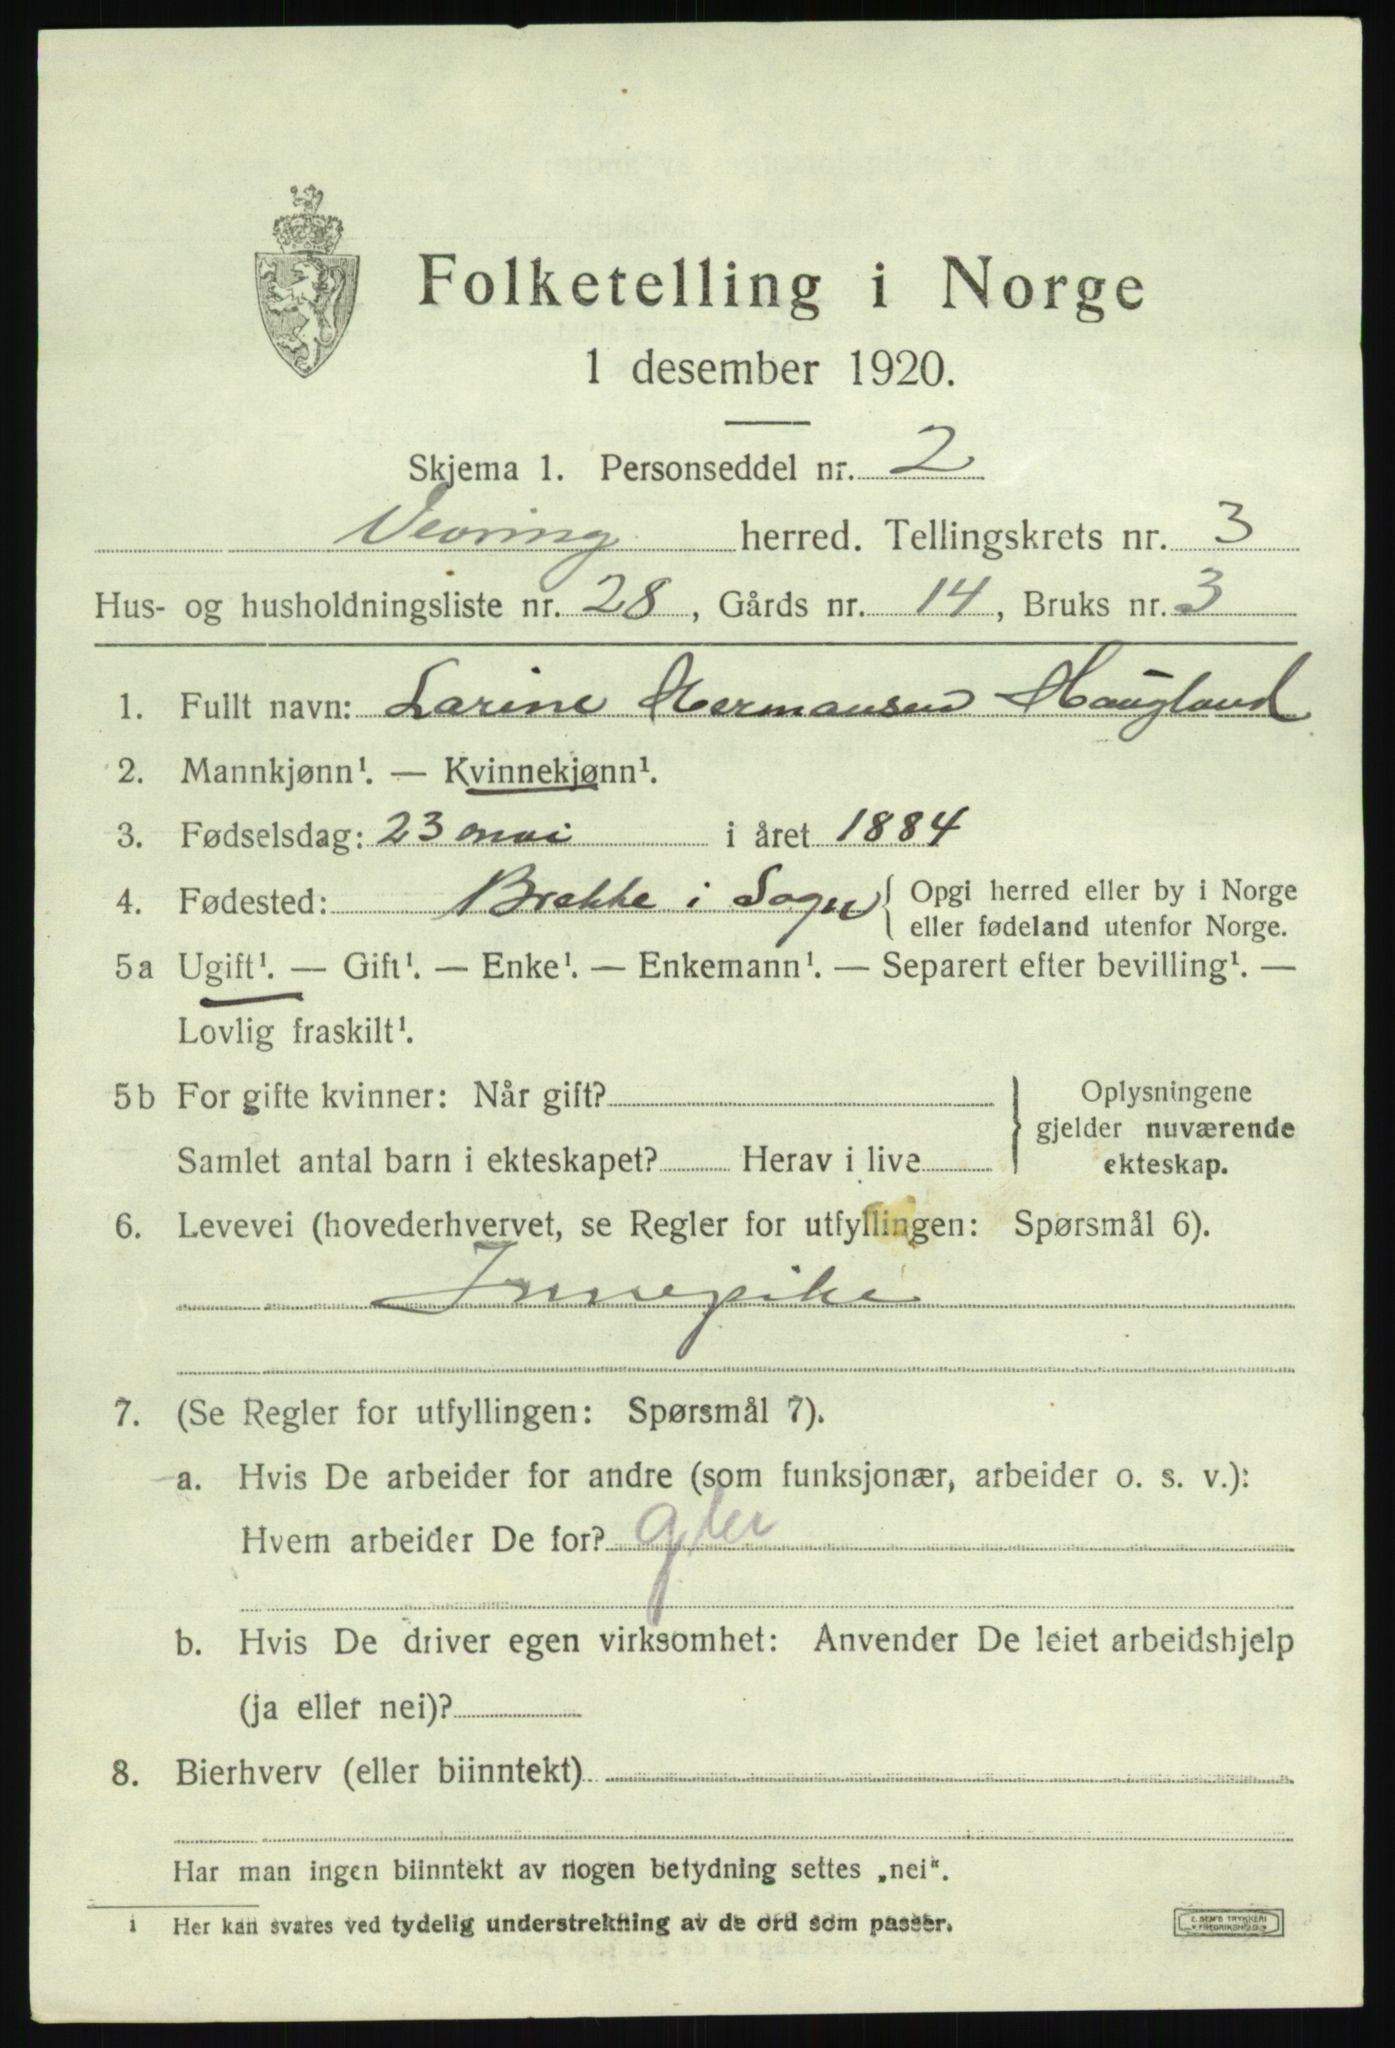 Folketelling i Norge
1 desember 1920.
Skjema 1. Personseddel nr. 2
Vevring herred. Tellingskrets nr. 3
Hus- og husholdningsliste nr. 28, Gårds nr. 14, Bruks nr. 3
1. Fullt navn: Larine Hermansen Haugland
2. Mannkjønn¹. — Kvinnekjønn¹.
3. Fødselsdag: 23 mai i året 1884
4. Fødested: Brekke i Sogn { Opgi herred eller by i Norge
eller fødeland utenfor Norge.
5a Ugift¹. — Gift¹. — Enke¹. — Enkemann¹. — Separert efter bevilling¹. —
Lovlig fraskilt¹.
5b For gifte kvinner: Når gift? } Oplysningene
gjelder nuværende
Samlet antal barn i ekteskapet? Herav i live ekteskap.
6. Levevei (hovederhvervet, se Regler for utfyllingen: Spørsmål 6).
Innepike
7. (Se Regler for utfyllingen: Spørsmål 7).
a. Hvis De arbeider for andre (som funksjonær, arbeider o. s. v.):
Hvem arbeider De for?
b. Hvis De driver egen virksomhet: Anvender De leiet arbeidshjelp
(ja eller nei)?
8. Bierhverv (eller biinntekt)
Har man ingen biinntekt av nogen betydning settes „nei“.
1 Her kan svares ved tydelig understrekning av de ord som passer.
E. SEM'S TRYKKERI
FREDRIKSHALD